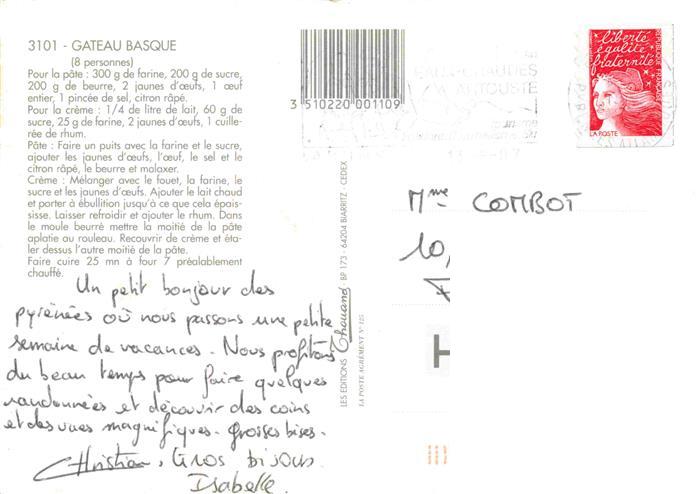 3101 - GATEAU BASQUE
(8 personnes)
Pour la pâte : 300 g de farine, 200 g de sucre,
200 g de beurre, 2 jaunes d'œufs, 1 œuf
entier, 1 pincée de sel, citron râpé.
Pour la crème : 1/4 de litre de lait, 60 g de
sucre, 25 g de farine, 2 jaunes d'œufs, 1 cuille-
rée de rhum.
Pâte : Faire un puits avec la farine et le sucre,
ajouter les jaunes d'œufs, l'œuf, le sel et le
citron râpé, le beurre et malaxer.
Crème : Mélanger avec le fouet, la farine, le
sucre et les jaunes d'œufs. Ajouter le lait chaud
et porter à ébullition jusqu'à ce que cela épais-
sisse. Laisser refroidir et ajouter le rhum. Dans
le moule beurré mettre la moitié de la pâte
aplatie au rouleau. Recouvrir de crème et éta-
ler dessus l'autre moitié de la pâte.
Faire cuire 25 mn à four 7 préalablement
chauffé.
Un petit bonjour des
pyrénées où nous passons une petite
semaine de vacances. Nous profitons
du beau temps pour faire quelques
randonnées et découvrir des coins
et des vues magnifiques. Grosses bises.
Christian, Gros bisous
Isabelle.
3 510220 001109
LES EDITIONS Chouand BP 173 - 64204 BIARRITZ - CEDEX
LA POSTE AGRÉMENT N° 125
EAUX-CHAUDES
ARTOUSTE
liberté
égalité
fraternité
RÉPUBLIQUE FRANÇAISE
LA POSTE
Mme COMBOT
10,